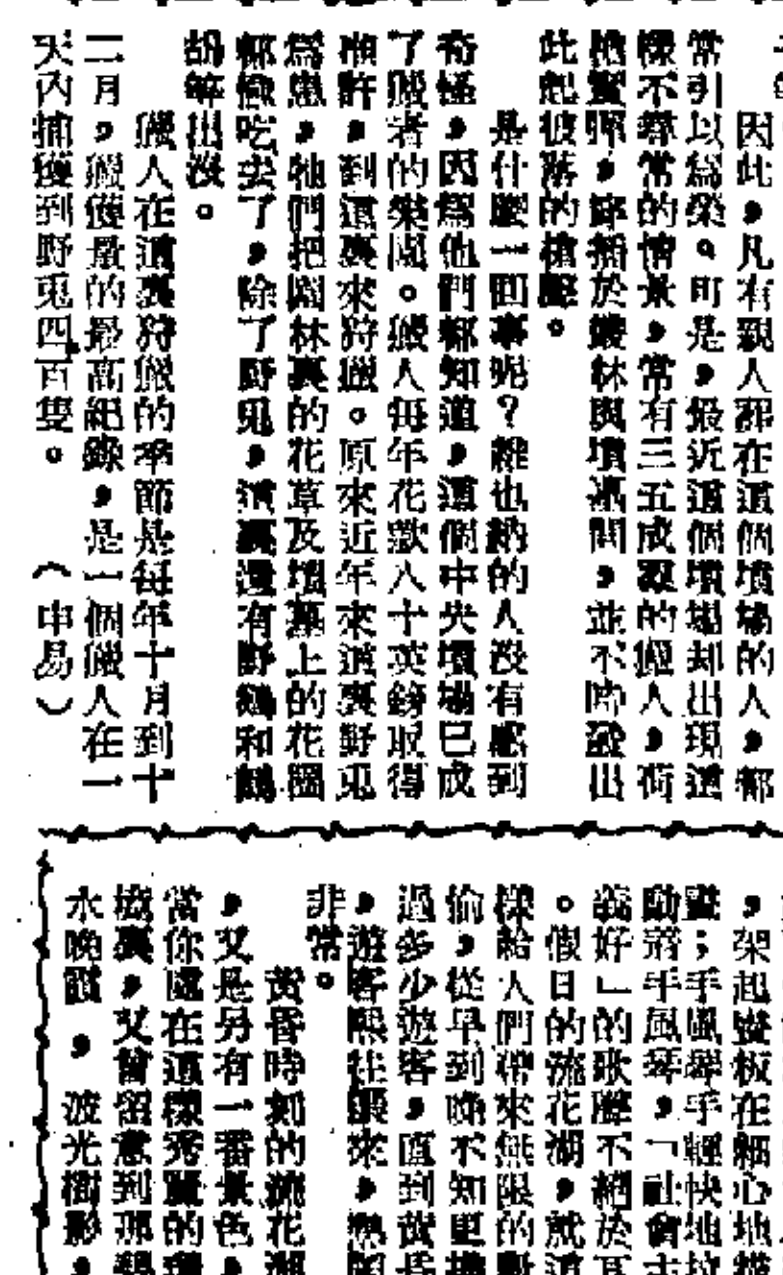 因此，凡有親人葬在這個墳場的人，都
常引以爲榮。可是，最近這個墳場却出現這
樣不尋常的情景，常有三五成羣的獵人，荷
槍實彈，穿插於叢林與墳墓間，並不時發出
此起彼落的槍聲。
是什麼一回事呢？誰也納的人沒有感到
奇怪，因爲他們都知道，這個中央墳場已成
了獵者的樂園。獵人每年花歀八十英鎊取得
准許，到這裏來狩獵。原來近年來這裏野兎
爲患，牠們把園林裏的花草及墳墓上的花圈
都偷吃去了，除了野兎，這裏還有野鷄和鶴
胡等出沒。
獵人在這裏狩獵的季節是每年十月到十
二月，獵獲量的最高紀錄，是一個獵人在一
天內捕獲到野兎四百隻。（申易）
，架起畫板在細心地
畫；手風琴手輕快地拉
動着手風琴，「社會主
義好」的歌聲不絕於耳
。假日的流花湖，就這
樣給人們帶來無限的歡
愉，從早到晚不知更換
過多少遊客，直到黃昏
，遊客熙往攘來，熱鬧
非常。
黃昏時刻的流花湖
，又是另有一番景色，
當你處在這樣秀麗的環
境裏，又曾留意到那
水晚霞，波光樹影，